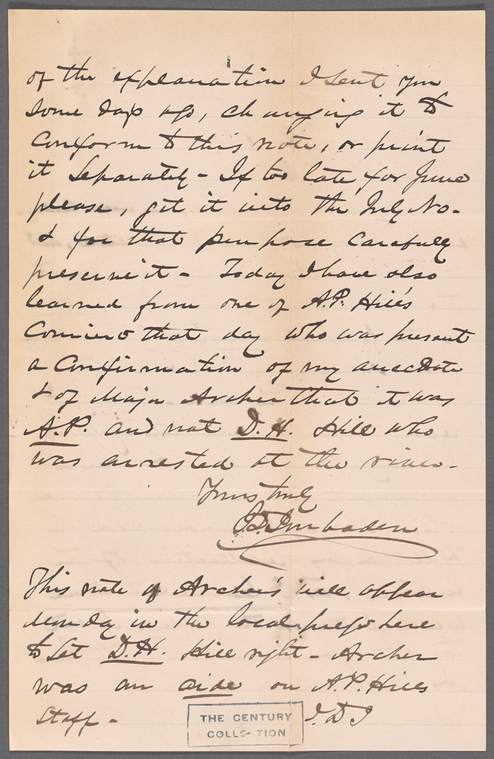 of the explanation I sent you
some days ago, changing it to
conform to this note, or print
it separately - If too late for June
please, get it into the July No.
& for that purpose carefully
preserve it - Today I have also
learned from one of A.P. Hill's
that day who was present
a confirmation of my anecdote
& of Major Archer that it was
A.P. and not D.H. Hill who
was arrested at the river.
Yours truly
J.D. Imboden
This note of Archer's will appear
Monday in the local press here
to set D.H. Hill right - Archer
was an aide on A.P. Hill's
Staff -
J.D.I
THE CENTURY
COLLECTION